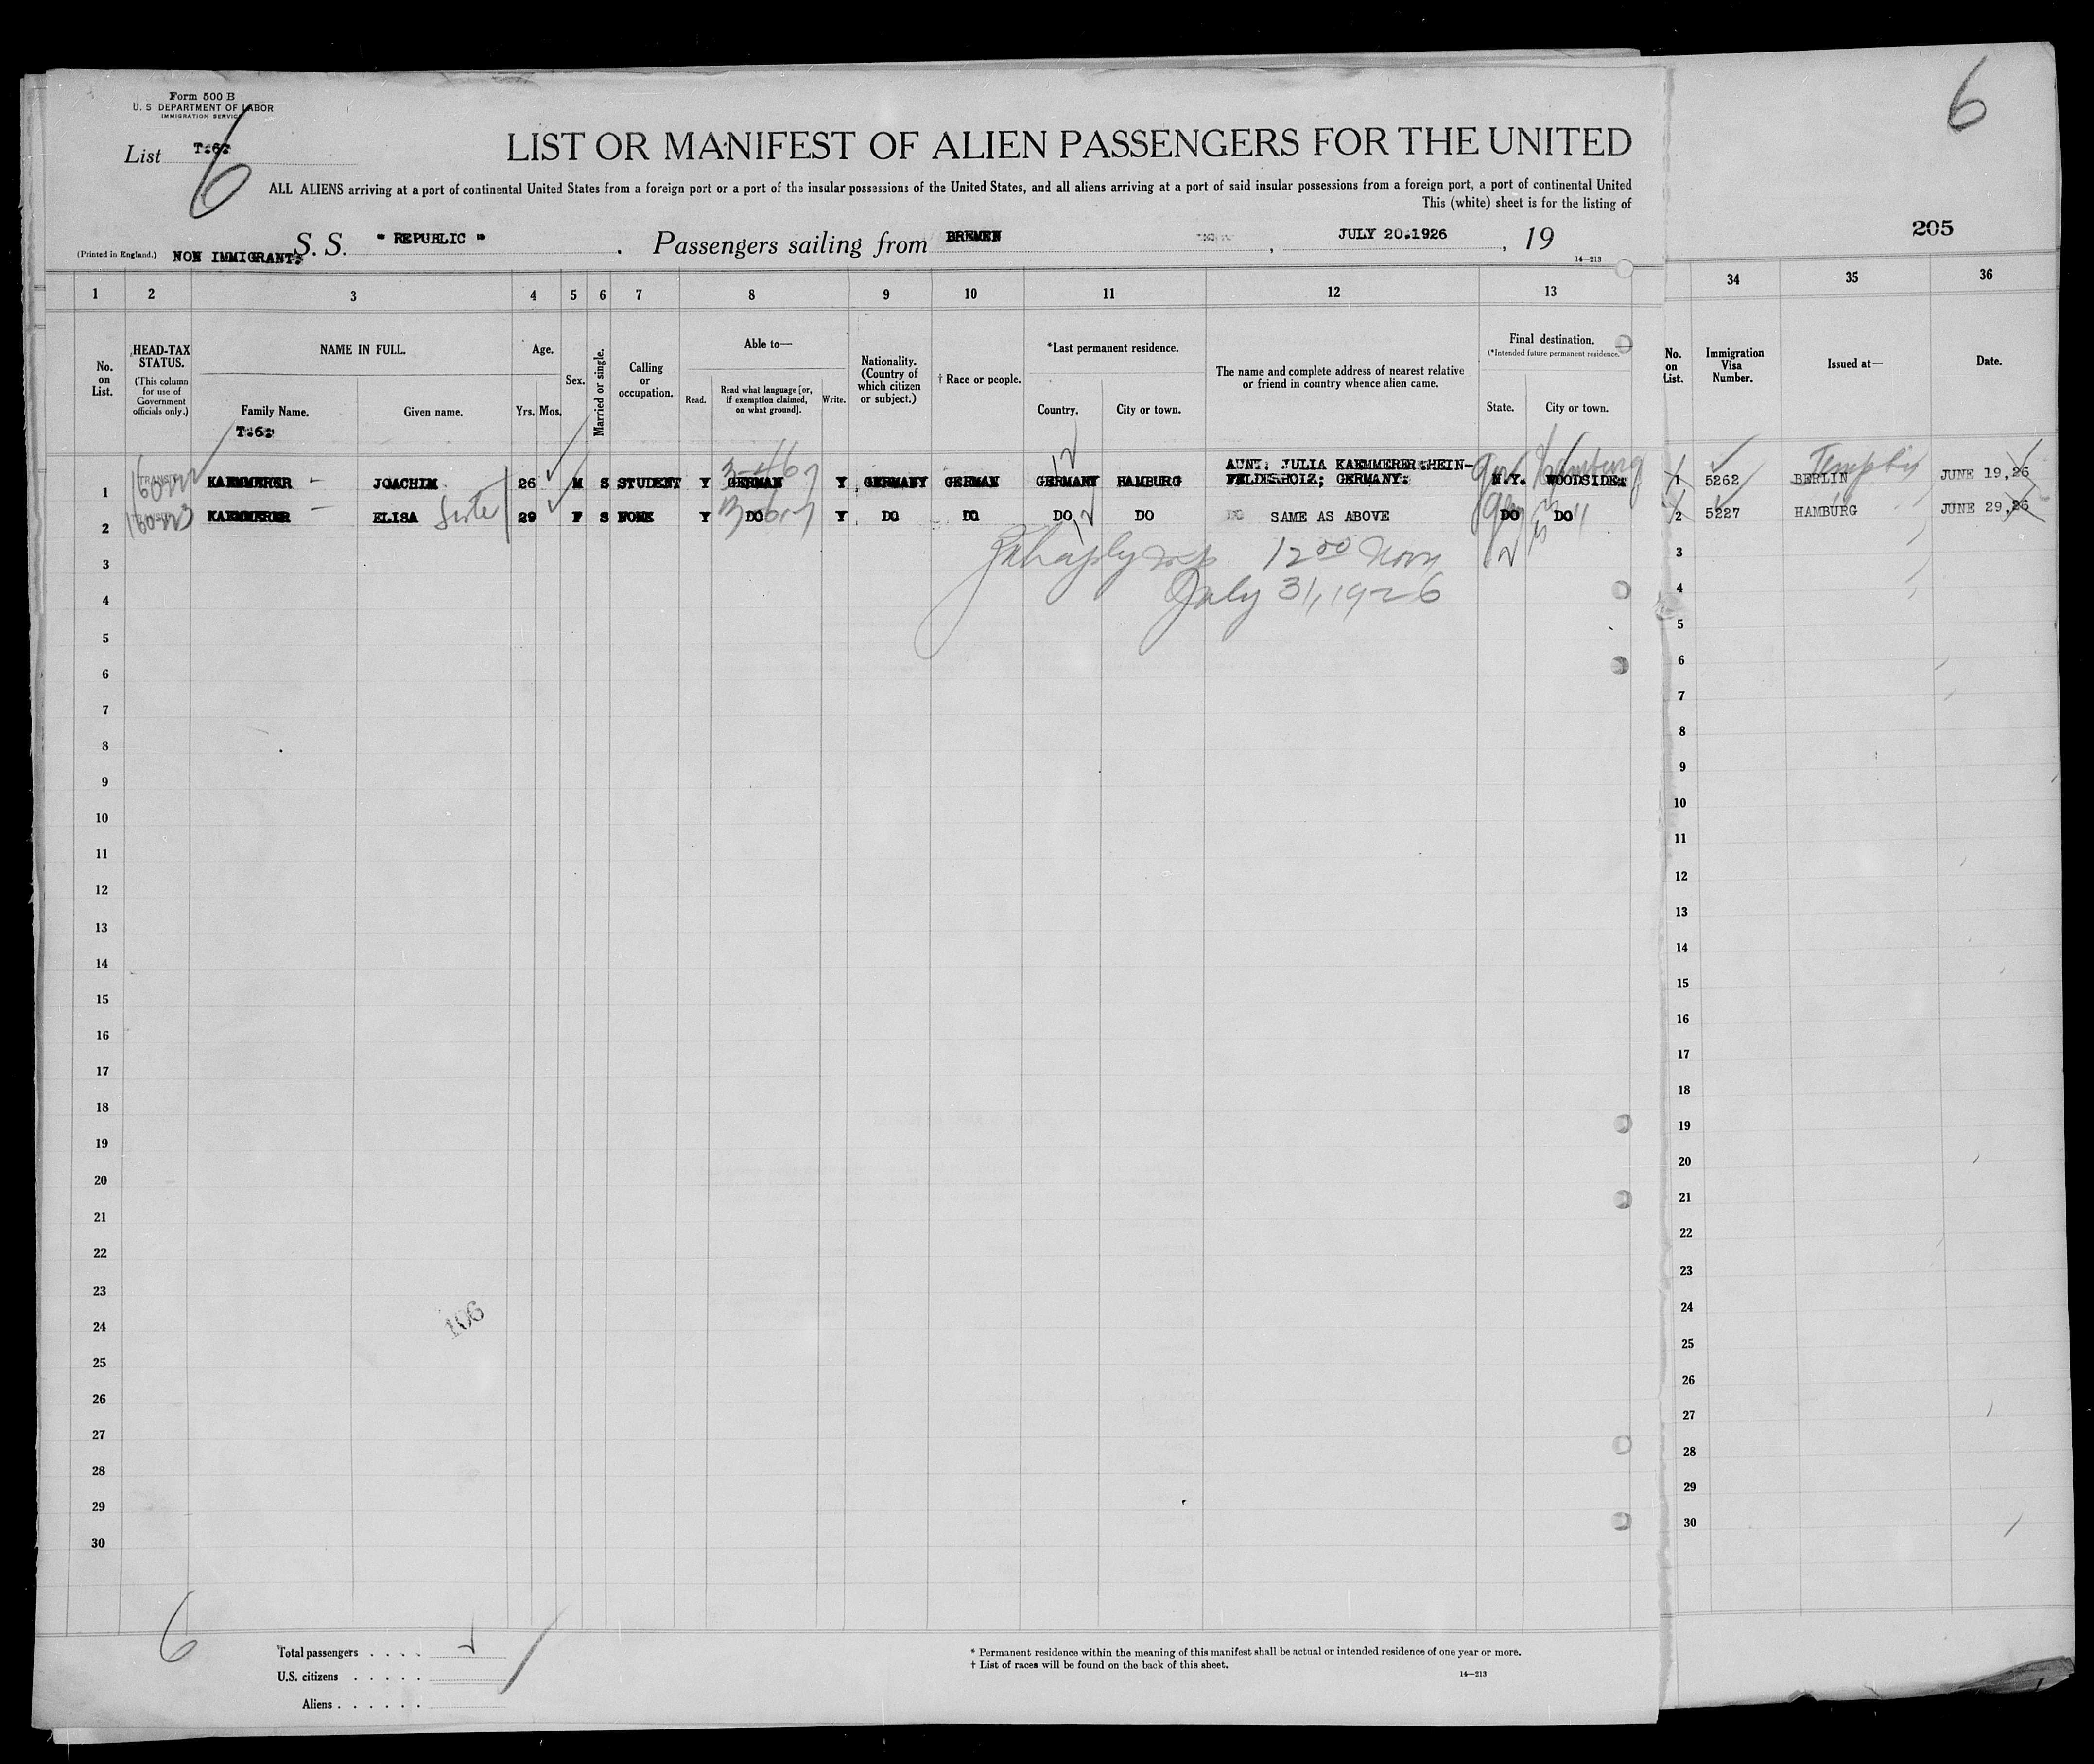 Form 500 B
U. S DEPARTMENT OF LABOR
IMMIGRATION SERVICE
6
List T:6:
6
LIST OR MANIFEST OF ALIEN PASSENGERS FOR THE UNITED
ALL ALIENS arriving at a port of continental United States from a foreign port or a port of the insular possessions of the United States, and all aliens arriving at a port of said insular possessions from a foreign port, a port of continental United
This (white) sheet is for the listing of
205
(Printed in England.) NON IMMIGRANT: S. S. " REPUBLIC " . Passengers sailing from BREMEN , JULY 20.1926 , 19
14—213
1 2 3 4 5 6 7 8 9 10 11 12 13 34 35 36
No. on List.
HEAD-TAX STATUS.
(This column for use of Government officials only.)
NAME IN FULL.
Family Name. Given name.
T:6:
Age.
Yrs. Mos.
Sex.
Married or single.
Calling or occupation.
Able to—
Read. Read what language [or, if exemption claimed, on what ground]. Write.
Nationality. (Country of which citizen or subject.)
† Race or people.
*Last permanent residence.
Country. City or town.
The name and complete address of nearest relative or friend in country whence alien came.
Final destination.
(*Intended future permanent residence.)
State. City or town.
No. on List.
Immigration Visa Number.
Issued at—
Date.
AUNT: JULIA KAEMMERER:HEIN-
1 KAEMMERER JOACHIM 26 M S STUDENT Y GERMAN Y GERMANY GERMAN GERMANY HAMBURG FELDERHOLZ; GERMANY: N.Y. WOODSIDE: 1 5262 BERLIN JUNE 19,26
2 KAEMMERER ELISA Sister 29 F S NONE Y DO Y DO DO DO DO DO SAME AS ABOVE DO DO 2 5227 HAMBURG JUNE 29,26
3 12 00 Noon 3
4 July 31, 1926 4
5 5
6 6
7 7
8 8
9 9
10 10
11 11
12 12
13 13
14 14
15 15
16 16
17 17
18 18
19 19
20 20
21 21
22 22
23 23
24 106 24
25 25
26 26
27 27
28 28
29 29
30 30
6
Total passengers . . . .
U.S. citizens . . . . .
Aliens . . . . . .
* Permanent residence within the meaning of this manifest shall be actual or intended residence of one year or more.
† List of races will be found on the back of this sheet.
14—213